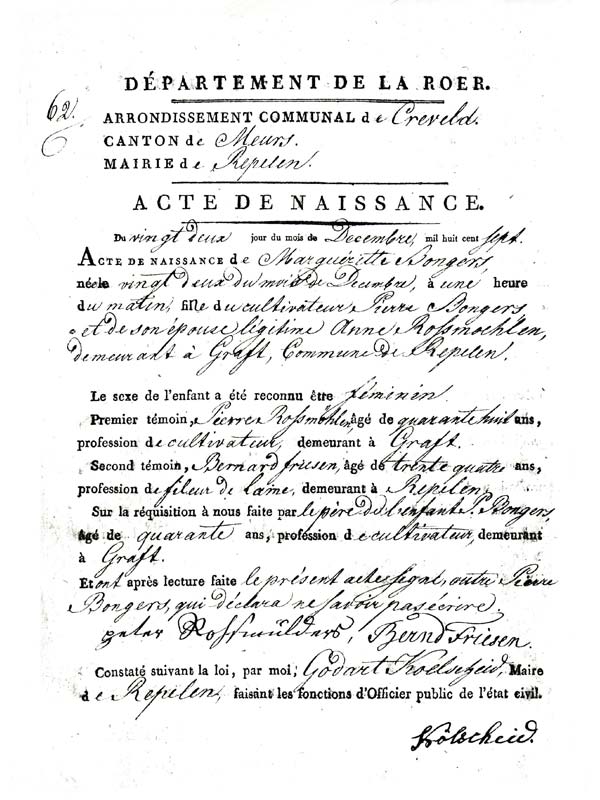 DÉPARTEMENT DE LA ROER.
62.
ARRONDISSEMENT COMMUNAL de Creveld.
CANTON de Meurs.
MAIRIE de Repelen.
ACTE DE NAISSANCE.
Du vingt deux jour du mois de Decembre, mil huit cent sept.
ACTE DE NAISSANCE de Margueritte Bongers,
née le vingt deux du mois de Decembre, à une heure
du matin, fille du cultivateur Pierre Bongers,
et de son épouse légitime Anne Rossmoehlen,
demeurant à Graft, Commune de Repelen.
Le sexe de l'enfant a été reconnu être féminin
Premier témoin, Pierre Rossmöhlen, âgé de quarante huit ans,
profession de cultivateur, demeurant à Graft.
Second témoin, Bernard friesen, âgé de trente quatre ans,
profession de fileur de laine, demeurant à Repelen,
Sur la réquisition à nous faite par le père de l'enfant P. Bongers,
âgé de quarante ans, profession de cultivateur, demeurant
à Graft.
Et ont après lecture faite le présent acte signé, outre Pierre
Bongers, qui déclara ne savoir pas écrire.
peter Rossmülders, Bernd Friesen.
Constaté suivant la loi, par moi, Godart Koelscheid, Maire
de Repelen, faisant les fonctions d'Officier public de l'état civil.
Kölscheid.